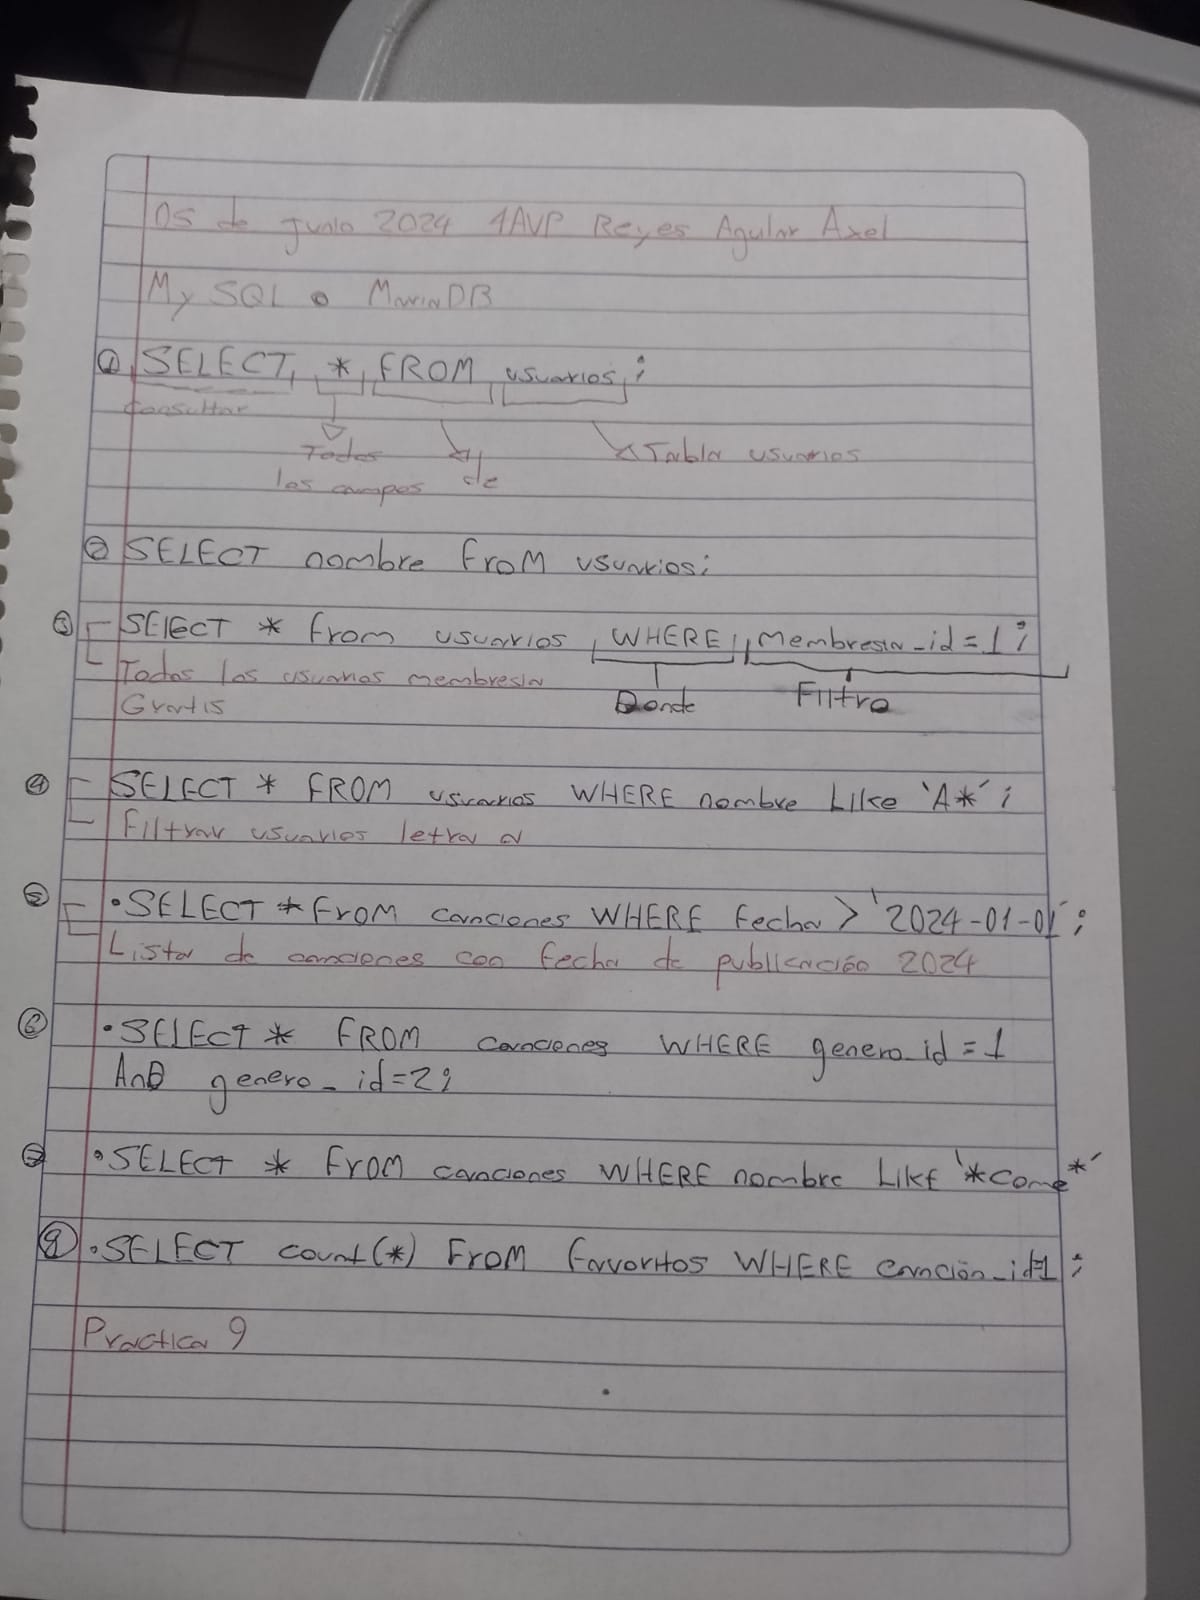 05 de junio 2024 1AVP Reyes Agular Axel
My SQL o MariaDB
① SELECT * FROM usuarios;
Consultar
Todos los campos
de
Tabla usuarios
② SELECT nombre FroM usuarios;
③ SElEcT * from usuarios WHERE Membresia_id=1;
Todos los usuarios membresia
Gratis
Donde
Filtro
④ SELECT * FROM usuarios WHERE nombre LIke 'A*';
Filtrar usuarios letra a
⑤ •SELECT * FroM canciones WHERE fecha > '2024-01-01';
Lista de canciones con fecha de publicación 2024
⑥ •SELECT * FROM canciones WHERE genero_id =1
AnD genero_id=2;
⑦ •SELECT * FroM canciones WHERE nombre LikE '*come*'
⑧ •SELECT count(*) FroM favoritos WHERE canción_id=1;
Practica 9